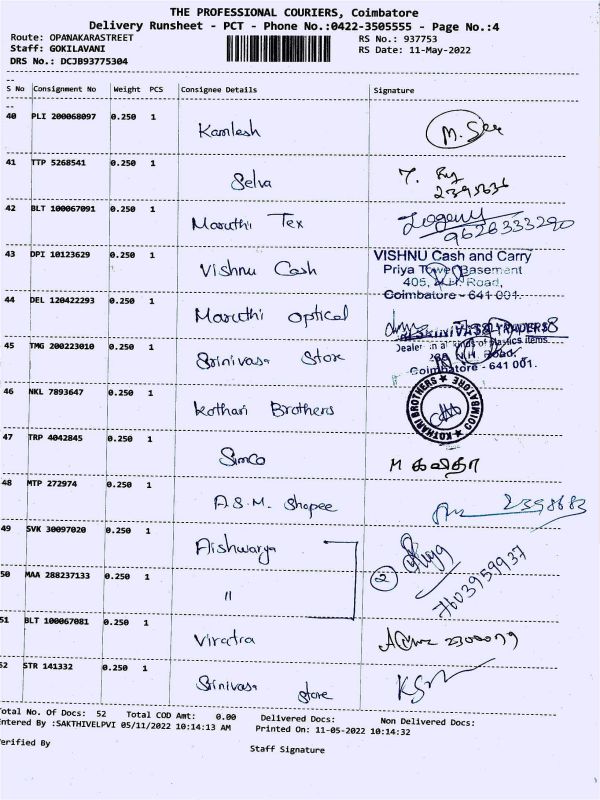 THE PROFESSIONAL COURIERS, Coimbatore
Delivery Runsheet - PCT - Phone No.:0422-3505555 - Page No.:4
Route: OPANAKARASTREET
RS No.: 937753
Staff: GOKILAVANI
RS Date: 11-May-2022
DRS No.: DCJB93775304
S No Consignment No Weight PCS Consignee Details Signature
40 PLI 200068097 0.250 1 Kamlesh
41 TTP 5268541 0.250 1 Selva
2395636
42 BLT 100067091 0.250 1 Maruthi Tex
9626333290
43 DPI 10123629 0.250 1 Vishnu Cash
VISHNU Cash and Carry
Priya Tower Basement
405, N.H. Road,
Coimbatore - 641 001.
44 DEL 120422293 0.250 1 Maruthi optical
45 TMG 200223010 0.250 1 Srinivasa Store
TRADERS
Dealer in all kinds of Plastics items
N.H. Road,
Coimbatore - 641 001.
46 NKL 7893647 0.250 1 Kothari Brothers
KOTHARI BROTHERS ★ COIMBATORE ★
47 TRP 4042845 0.250 1 Simco M கவிதா
48 MTP 272974 0.250 1 A.S.M. Shopee
2398683
49 SVK 30097020 0.250 1 Aishwarya
50 MAA 288237133 0.250 1 "
2
7603959937
51 BLT 100067081 0.250 1 Viratra
52 STR 141332 0.250 1 Srinivasa store
Total No. Of Docs: 52 Total COD Amt: 0.00 Delivered Docs: Non Delivered Docs:
Entered By :SAKTHIVELPVI 05/11/2022 10:14:13 AM Printed On: 11-05-2022 10:14:32
Verified By
Staff Signature